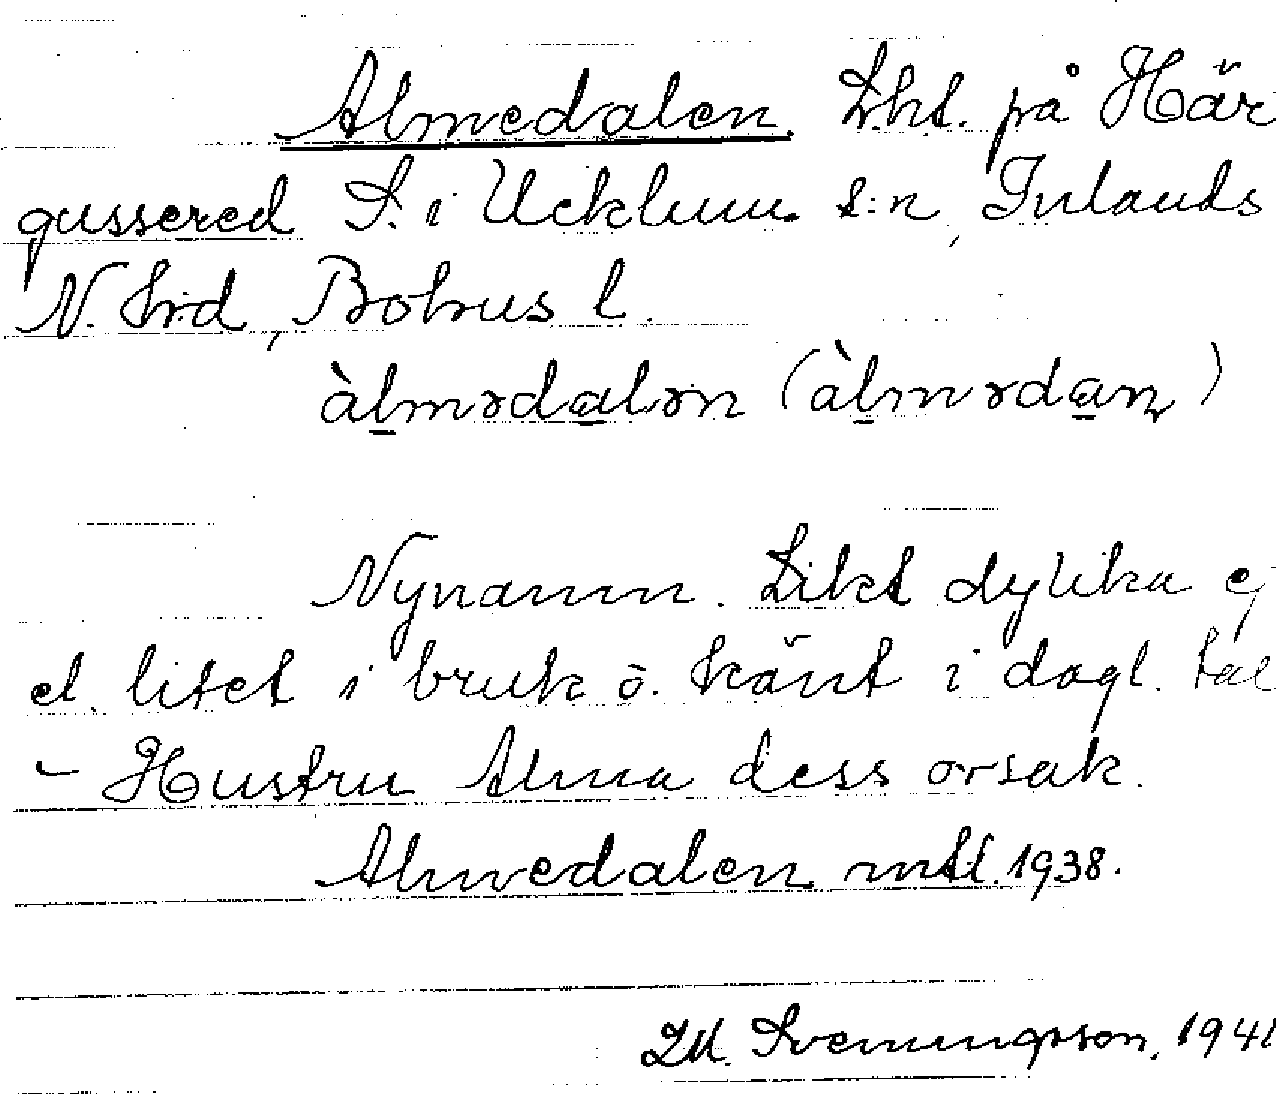 Almedalen. Lht. på Här
gussered S. i Ucklum s:n, Inlands
N. hrd, Bohus l.
àlmədalən (àlmədaɳ)
Nynamn. Likt dylika ej
el. litet i bruk o. känt i dagl. tal
– Hustru Alma dess orsak.
Almedalen mtl. 1938.
Svenningsson, 1941